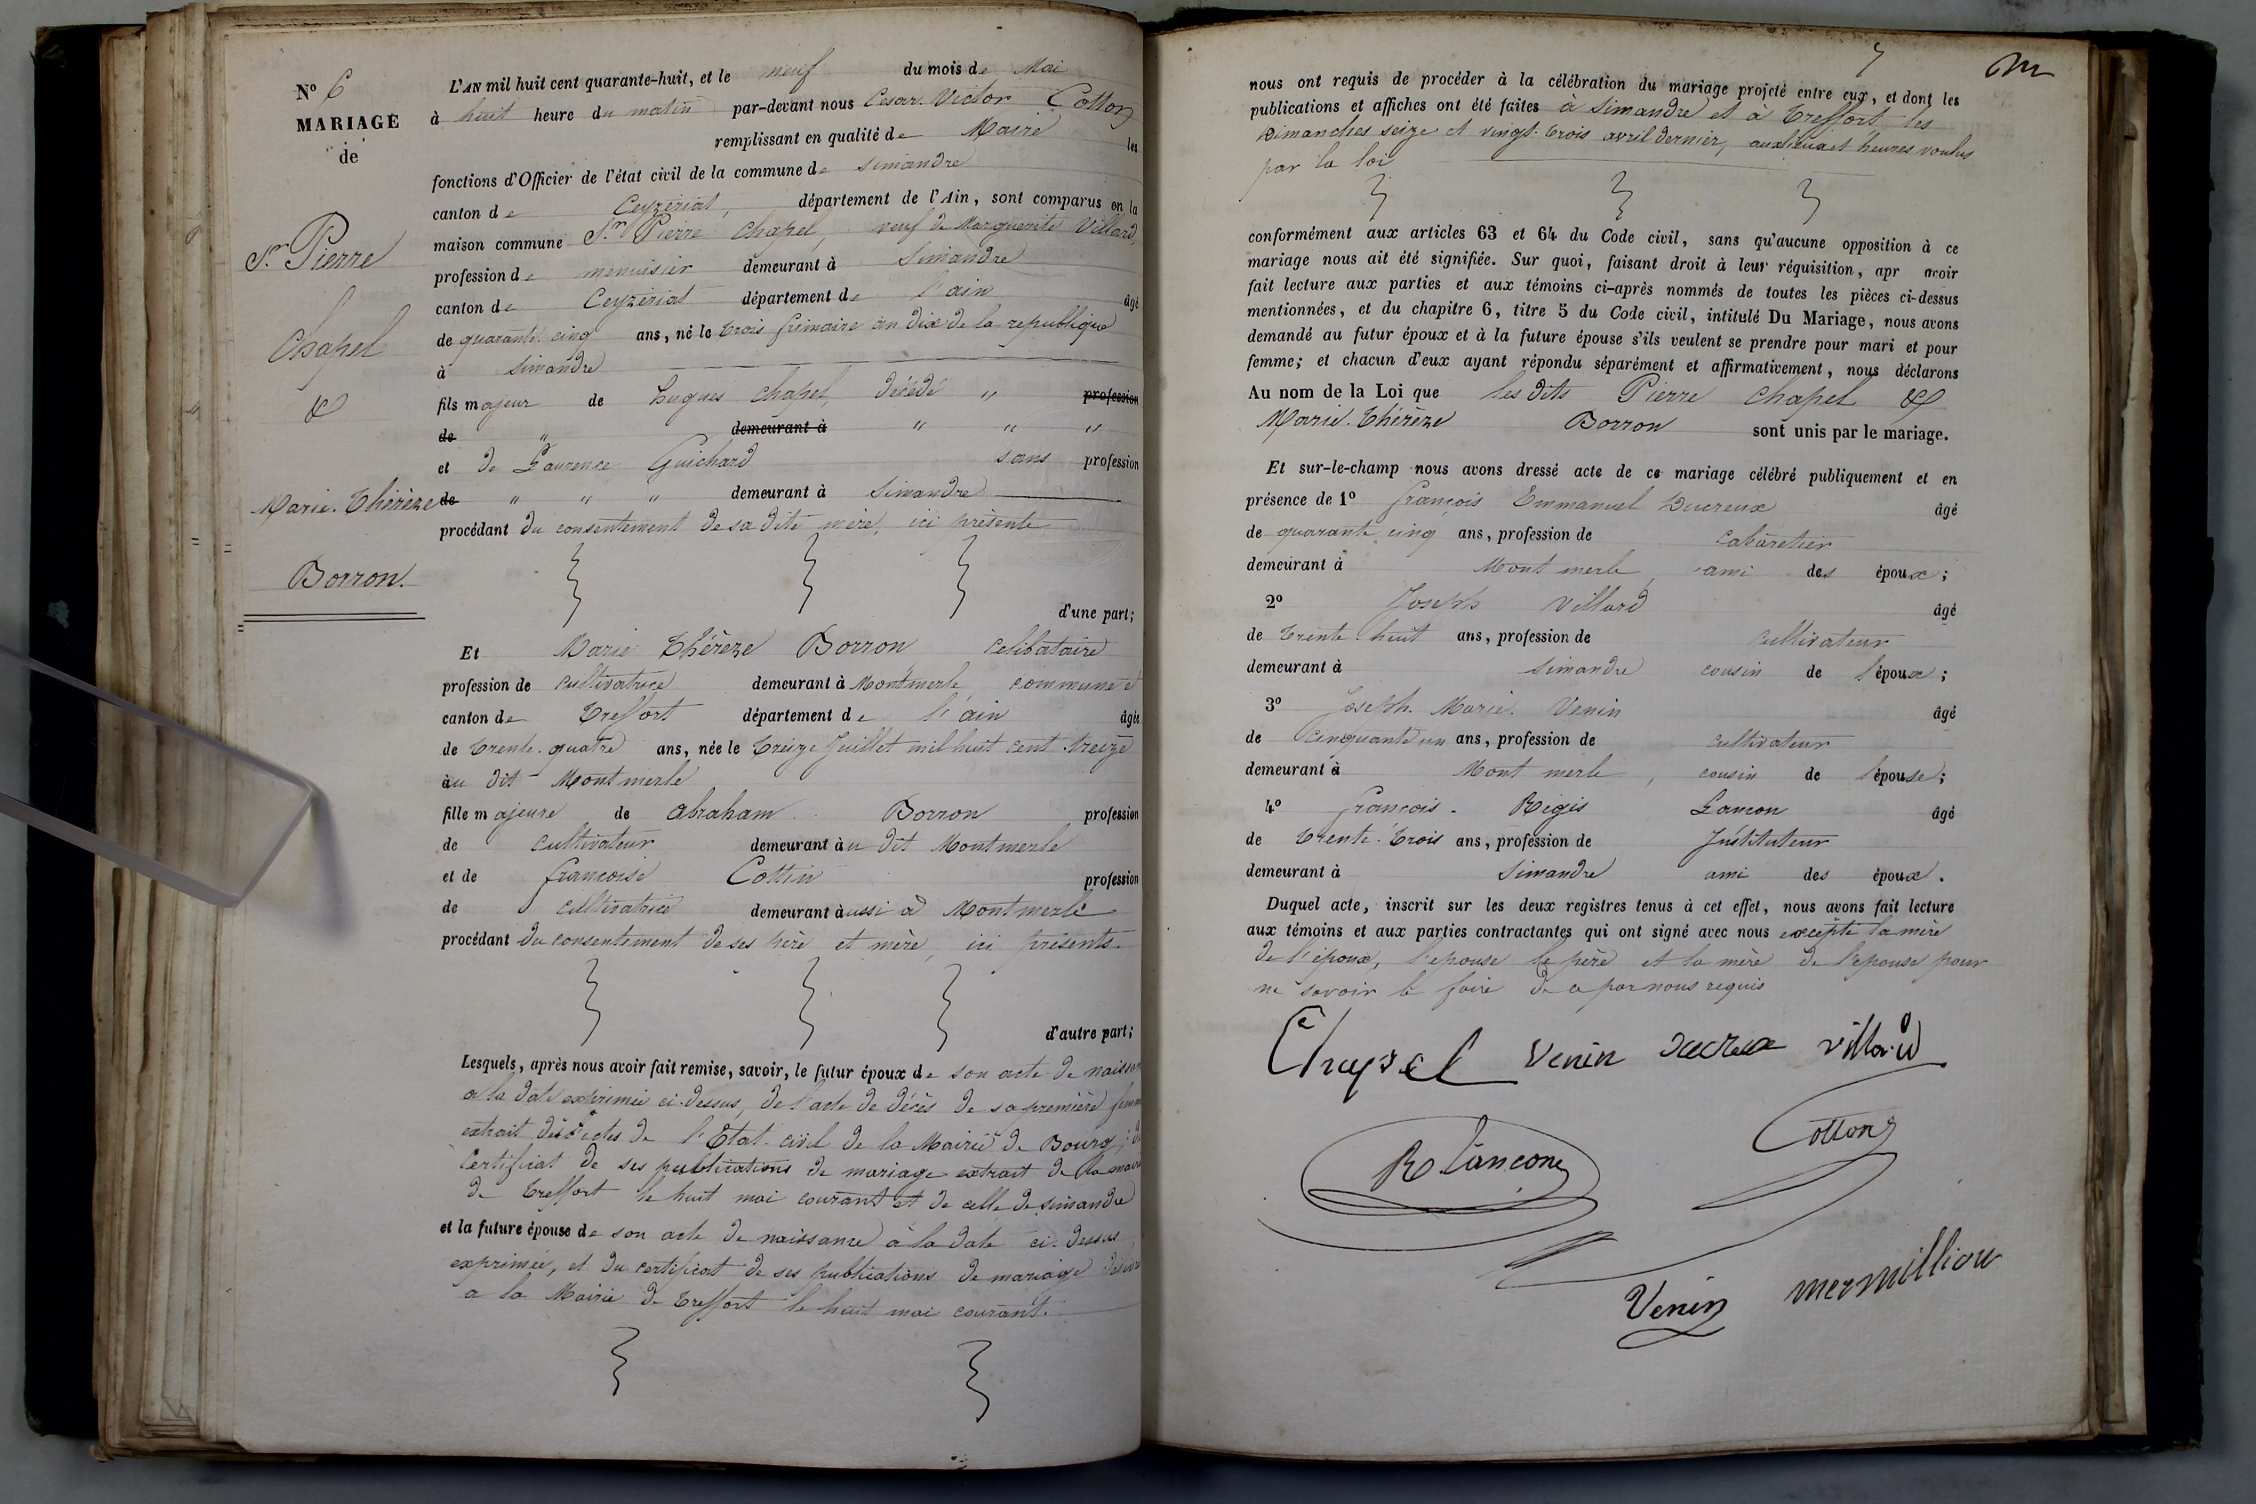 N° 6
MARIAGE
de
Sr. Pierre
Chapel
&
Marie-Thérèze
Borron.
L'AN mil huit cent quarante-huit, et le neuf du mois de Mai
à huit heure du matin par-devant nous Cesar Victor Cotton
remplissant en qualité de Maire les
fonctions d'Officier de l'état civil de la commune de Simandre
canton de Ceyzériat, département de l'Ain, sont comparus en la
maison commune Sr. Pierre Chapel, veuf de Marguerite Villard,
profession de menuisier demeurant à Simandre
canton de Ceyzériat département de l'ain âgé
de quarante cinq ans, né le trois frimaire an dix de la republique
à Simandre
fils majeur de hugues Chapel, décédé " profession
de " demeurant à " " "
et de Laurence Guichard sans profession
de " " " demeurant à Simandre
procédant du consentement de sa dite mère, ici présente
d'une part;
Et Marie Thérèze Borron celibataire
profession de cultivatrice demeurant à Montmerle, commune et
canton de treffort département de l'ain âgée
de trente-quatre ans, née le treize Juillet mil huit cent treize
au dit Montmerle
fille majeure de abraham Borron profession
de cultivateur demeurant au dit Montmerle
et de françoise Cottin profession
de cultivatrice demeurant aussi à Montmerle
procédant du consentement de ses père et mère, ici présents
d'autre part;
Lesquels, après nous avoir fait remise, savoir, le futur époux de son acte de naissan
a la date exprimée ci-dessus, de l'acte de décès de sa première femm
extrait des actes de l'Etat-civil de la Mairie de Bourg; du
Certificat de ses publications de mariage extrait de la mairi
de treffort le huit mai courant et de celle de simandre
et la future épouse de son acte de naissance à la date ci-dessus
exprimée, et du certificat de ses publications de mariage délivré
a la Mairie de treffort le huit mai courant.
7
nous ont requis de procéder à la célébration du mariage projeté entre eux, et dont les
publications et affiches ont été faites à Simandre et à treffort les
Dimanches seize et vingt-trois avril dernier, aux lieux et heures voulus
par la loi
conformément aux articles 63 et 64 du Code civil, sans qu'aucune opposition à ce
mariage nous ait été signifiée. Sur quoi, faisant droit à leur réquisition, apr avoir
fait lecture aux parties et aux témoins ci-après nommés de toutes les pièces ci-dessus
mentionnées, et du chapitre 6, titre 5 du Code civil, intitulé Du Mariage, nous avons
demandé au futur époux et à la future épouse s'ils veulent se prendre pour mari et pour
femme; et chacun d'eux ayant répondu séparément et affirmativement, nous déclarons
Au nom de la Loi que les dits Pierre Chapel &
Marie-Thérèze Borron sont unis par le mariage.
Et sur-le-champ nous avons dressé acte de ce mariage célébré publiquement et en
présence de 1° françois Emmanuel Ducreux âgé
de quarante cinq ans, profession de cabaretier
demeurant à Mont merle, ami des époux;
2° Joseph Villard âgé
de trente-huit ans, profession de cultivateur
demeurant à Simandre cousin de l'époux;
3° Joseph-Marie Venin âgé
de cinquante un ans, profession de cultivateur
demeurant à Mont merle, cousin de l'épouse;
4° françois-Régis Lançon âgé
de trente-trois ans, profession de Instituteur
demeurant à Simandre ami des époux.
Duquel acte, inscrit sur les deux registres tenus à cet effet, nous avons fait lecture
aux témoins et aux parties contractantes qui ont signé avec nous excepté la mère
de l'époux, l'epouse le père et la mère de l'epouse pour
ne savoir le faire de ce par nous requis
Chapel Venin Ducreux Villard
R Lançon Cotton
Venin mermilliou